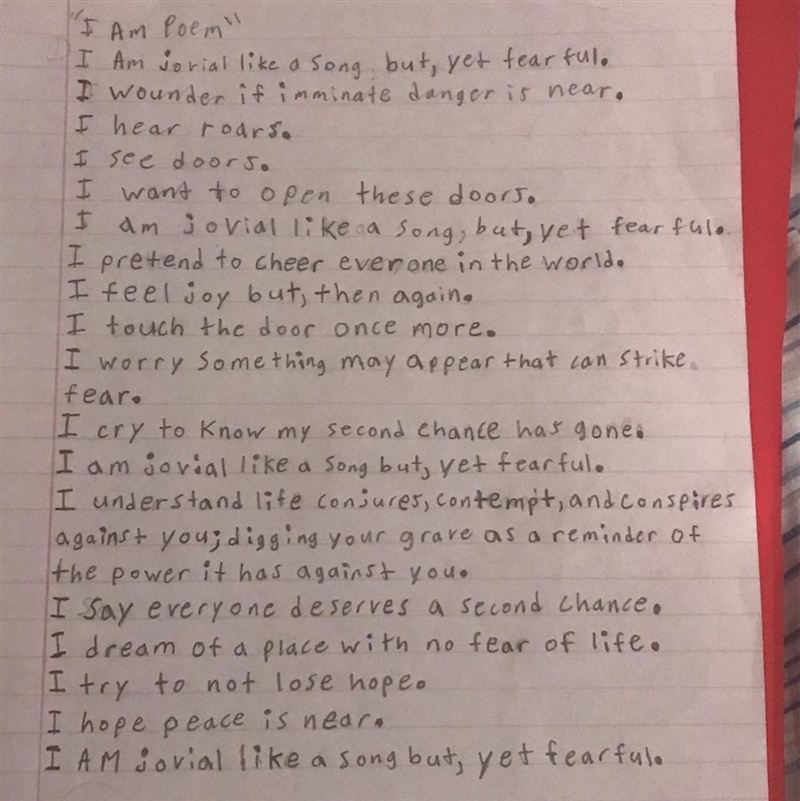 "I Am Poem"
I Am jovial like a song, but, yet fearful.
I wounder if imminate danger is near.
I hear roars.
I see doors.
I want to open these doors.
I am jovial like a song, but, yet fearful.
I pretend to cheer everone in the world.
I feel joy but, then again.
I touch the door once more.
I worry something may appear that can strike
fear.
I cry to know my second chance has gone.
I am jovial like a song but, yet fearful.
I understand life conjures, contempt, and conspires
against you; digging your grave as a reminder of
the power it has against you.
I say everyone deserves a second chance.
I dream of a place with no fear of life.
I try to not lose hope.
I hope peace is near.
I AM jovial like a song but, yet fearful.